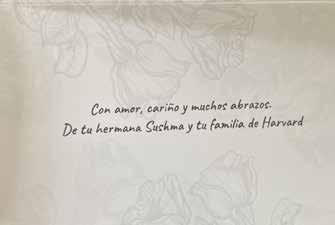 Con amor, cariño y muchos abrazos.
De tu hermana Sushma y tu familia de Harvard